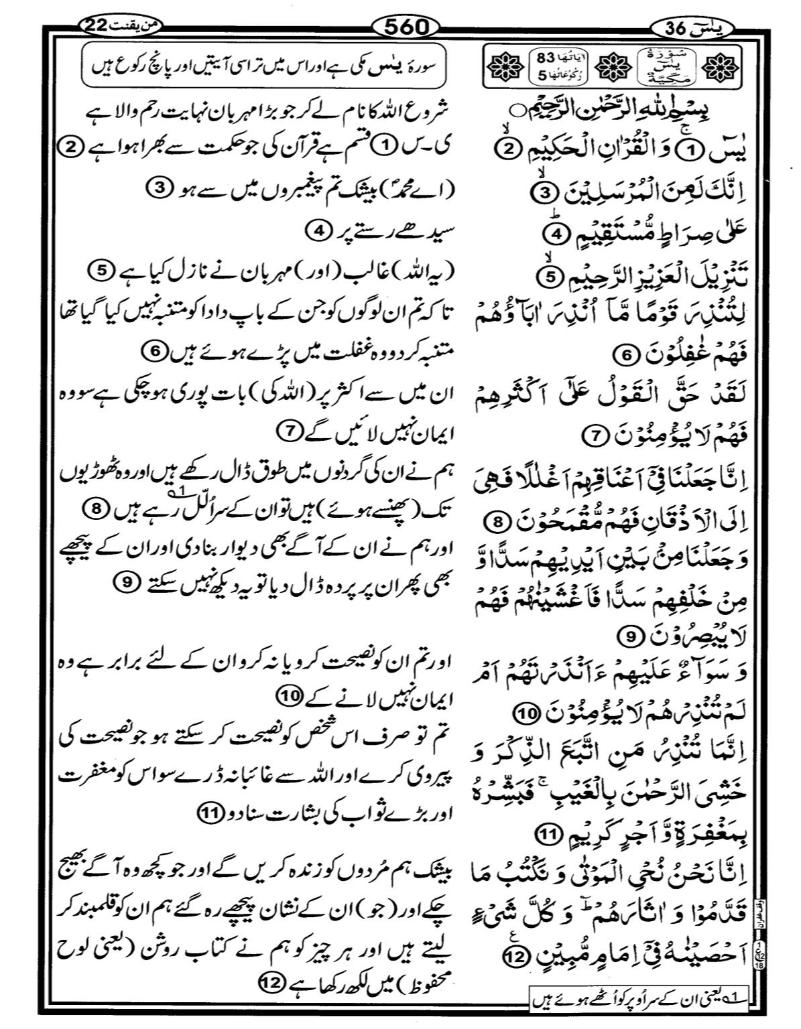 یٰسٓ 36
560
من یقنت 22
سُوْرَةُ
یٰسٓ
مَكِّيَّةٌ
اٰیَاتُهَا 83
رُكُوْعَاتُهَا 5
سورۂ یٰسٓ مکی ہے اور اس میں تراسی آیتیں اور پانچ رکوع ہیں
بِسْمِ اللّٰهِ الرَّحْمٰنِ الرَّحِیْمِ
یٰسٓ ۚ 1 وَ الْقُرْاٰنِ الْحَكِیْمِ ۙ 2
اِنَّكَ لَمِنَ الْمُرْسَلِیْنَ ۙ 3
عَلٰى صِرَاطٍ مُّسْتَقِیْمٍ ؕ 4
تَنْزِیْلَ الْعَزِیْزِ الرَّحِیْمِ ۙ 5
لِتُنْذِرَ قَوْمًا مَّاۤ اُنْذِرَ اٰبَآؤُهُمْ
فَهُمْ غٰفِلُوْنَ 6
لَقَدْ حَقَّ الْقَوْلُ عَلٰۤى اَكْثَرِهِمْ
فَهُمْ لَا یُؤْمِنُوْنَ 7
اِنَّا جَعَلْنَا فِیْۤ اَعْنَاقِهِمْ اَغْلٰلًا فَهِیَ
اِلَى الْاَذْقَانِ فَهُمْ مُّقْمَحُوْنَ 8
وَ جَعَلْنَا مِنْۢ بَیْنِ اَیْدِیْهِمْ سَدًّا وَّ
مِنْ خَلْفِهِمْ سَدًّا فَاَغْشَیْنٰهُمْ فَهُمْ
لَا یُبْصِرُوْنَ 9
وَ سَوَآءٌ عَلَیْهِمْ ءَاَنْذَرْتَهُمْ اَمْ
لَمْ تُنْذِرْهُمْ لَا یُؤْمِنُوْنَ 10
اِنَّمَا تُنْذِرُ مَنِ اتَّبَعَ الذِّكْرَ وَ
خَشِیَ الرَّحْمٰنَ بِالْغَیْبِ ۚ فَبَشِّرْهُ
بِمَغْفِرَةٍ وَّ اَجْرٍ كَرِیْمٍ 11
اِنَّا نَحْنُ نُحْیِ الْمَوْتٰى وَ نَكْتُبُ مَا
قَدَّمُوْا وَ اٰثَارَهُمْ ؕ وَ كُلَّ شَیْءٍ
اَحْصَیْنٰهُ فِیْۤ اِمَامٍ مُّبِیْنٍ 12
شروع اللہ کا نام لے کر جو بڑا مہربان نہایت رحم والا ہے
ی-س 1 قسم ہے قرآن کی جو حکمت سے بھرا ہوا ہے 2
(اے محمدؐ) بیشک تم پیغمبروں میں سے ہو 3
سیدھے رستے پر 4
(یہ اللہ) غالب (اور) مہربان نے نازل کیا ہے 5
تا کہ تم ان لوگوں کو جن کے باپ دادا کو متنبہ نہیں کیا گیا تھا
متنبہ کر دو وہ غفلت میں پڑے ہوئے ہیں 6
ان میں سے اکثر پر (اللہ کی) بات پوری ہو چکی ہے سو وہ
ایمان نہیں لائیں گے 7
ہم نے ان کی گردنوں میں طوق ڈال رکھے ہیں اور وہ ٹھوڑیوں
تک (پھنسے ہوئے) ہیں تو ان کے سر اُلل 1 رہے ہیں 8
اور ہم نے ان کے آگے بھی دیوار بنا دی اور ان کے پیچھے
بھی پھر ان پر پردہ ڈال دیا تو یہ دیکھ نہیں سکتے 9
اور تم ان کو نصیحت کرو یا نہ کرو ان کے لئے برابر ہے وہ
ایمان نہیں لانے کے 10
تم تو صرف اس شخص کو نصیحت کر سکتے ہو جو نصیحت کی
پیروی کرے اور اللہ سے غائبانہ ڈرے سو اس کو مغفرت
اور بڑے ثواب کی بشارت سنا دو 11
بیشک ہم مُردوں کو زندہ کریں گے اور جو کچھ وہ آگے بھیج
چکے اور (جو) ان کے نشان پیچھے رہ گئے ہم ان کو قلمبند کر
لیتے ہیں اور ہر چیز کو ہم نے کتاب روشن (یعنی لوح
محفوظ) میں لکھ رکھا ہے 12
1 یعنی ان کے سر اُوپر کو اُٹھے ہوئے ہیں